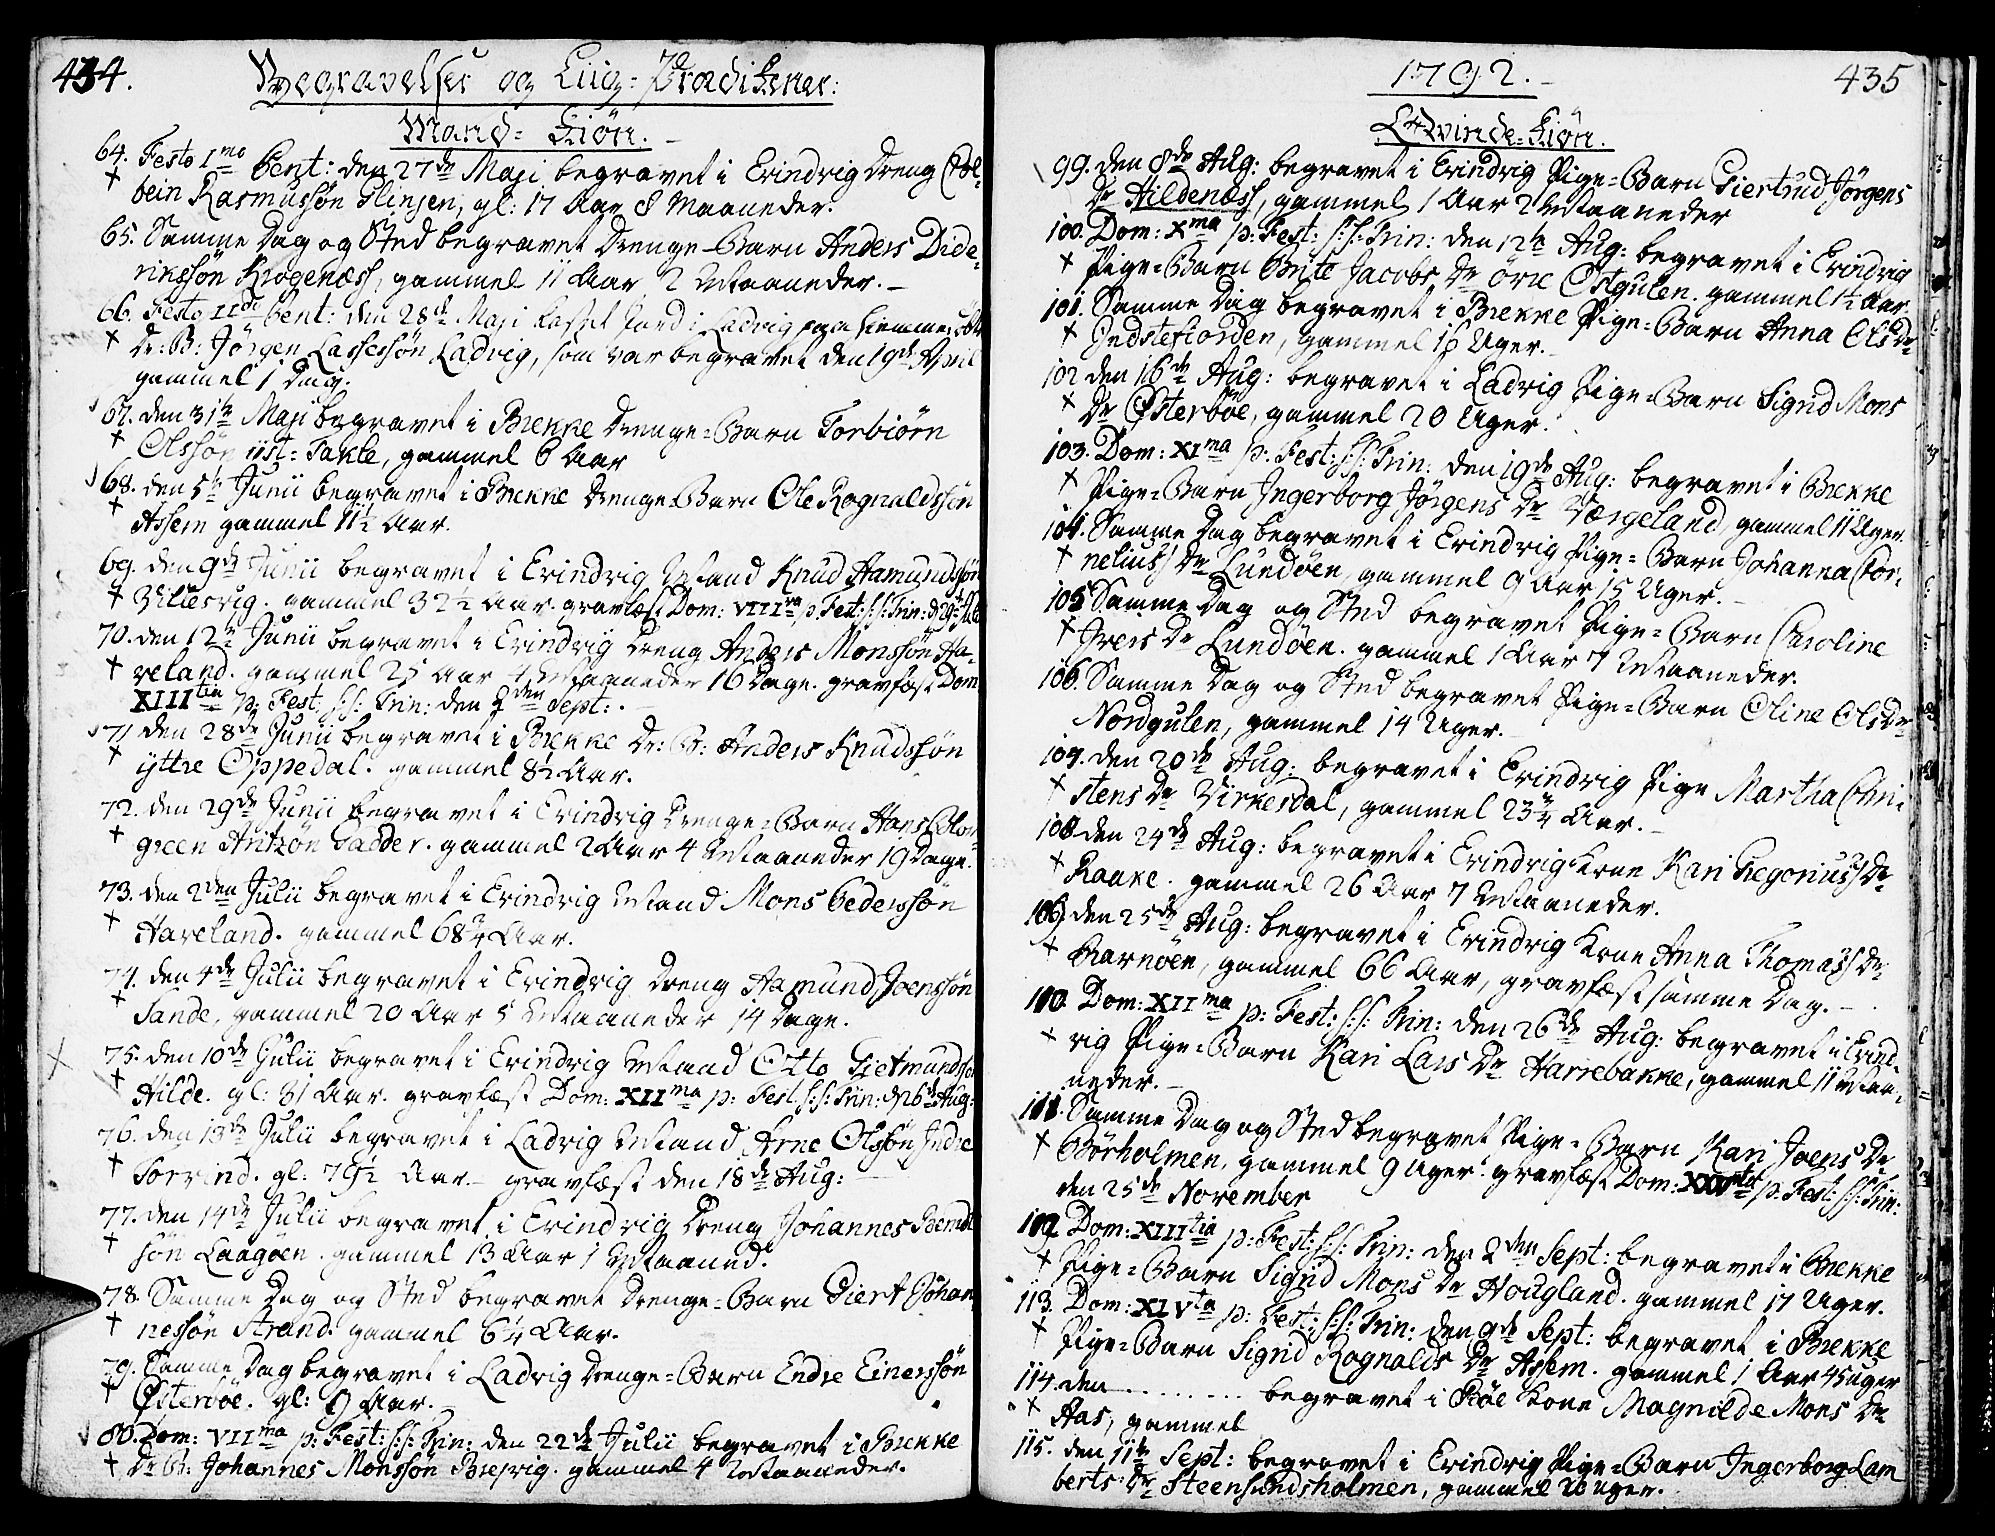 434.
Begravelser og Liig-Prædikener:
Mand-Kiøn.
64. Festo Imo Pent: den 27de Maji begravet i Evindvig Dreng Col-
bein Rasmussøn Glinjen, gl: 17 Aar 8 Maaneder.
65. Samme Dag og Sted begravet Drenge-Barn Anders Dide-
rikssøn Krogenæss, gammel 11 Aar 2 Maaneder.
66. Festo IIdo Pent: den 28de Maji kastet Jord i Ladvig paa hjemme
Dr: B: Jørgen Lassessøn Ladvig, som var begravet den 19de April
gammel 1 Dag.
67. den 31te Maji begravet i Brekke Drenge-Barn Torbiørn
Olssøn iist: Takle, gammel 6 Aar
68. den 5te Junii begravet i Brekke Drenge Barn Ole Rognaldssøn
Assem gammel 11½ Aar.
69. den 9de Junii begravet i Evindvig Mand Knud Hamundssøn
gammel 32½ Aar. gravfæst Dom: VIIIva p: Fest: s:s: Trin: d 29de Julii
70. den 12te Junii begravet i Evindvig Dreng Anders Monssøn Ha-
veland. gammel 25 Aar Maaneder 16 Dage. gravfæst Dom:
XIIItia p: Fest: s:s: Trin: den 2den Sept:
71. den 28de Junii begravet i Brekke Dr: B: Anders Knudssøn
yttre Oppedal. gammel 8½ Aar.
72. den 29de Junii begravet i Evindvig Drenge-Barn Hans
green Antzøn Gadder. gammel 2 Aar 4 Maaneder 19 Dage.
73. den 2den Julii begravet i Evindvig Mand Mons Pederssøn
Haveland. gammel 68¾ Aar.
74. den 4de Julii begravet i Evindvig Dreng Hamund Joenssøn
Sande, gammel 20 Aar 5 Maaneder 14 Dage.
75. den 10de Julii begravet i Evindvig Mand Otto Gietmundssøn
Hilde. gl: 31 Aar. gravfæst Dom: XIIma p: Fest: s:s: Trin: d 26de Aug:
76. den 13de Julii begravet i Ladvig Mand Arne Olssøn Indre
Torvind. gl: 79½ Aar. gravfæst den 18de Aug:
77. den 14de Julii begravet i Evindvig Dreng Johannes Berndt
søn Laagøen. gammel 13 Aar 1 Maaned.
78. Samme Dag og Sted begravet Drenge-Barn Giert Johan
nessøn Strand. gammel 6¼ Aar.
79. Samme Dag begravet i Ladvig Drenge-Barn Endre Einerssøn
Østerbøe. gl: 9 Aar.
80. Dom: VIIma p: Fest: s:s: Trin: den 22de Julii begravet i Brekke
Dr B: Johannes Monssøn Brevig. gammel 4 Maaneder.
1792.
435
Qvinde-Kiøn.
99. den 8de Aug: begravet i Evindvig Pige-Barn Giertrud Jørgens
Dr Hildenæss, gammel 1 Aar 2 Maaneder
100. Dom: Xma p: Fest: s:s: Trin: den 12te Aug: begravet i Evindvig
Pige-Barn Brite Jacobs Dr øvre Østgulen. gammel 1½ Aar
101. Samme Dag begravet i Brekke Pige-Barn Anna Ols Dr
Indstefiorden, gammel 16 Uger.
102 den 16de Aug: begravet i Ladvig Pige-Barn Sigrid Mons
Dr Østerbøe, gammel 20 Uger.
103. Dom: XIma p: Fest: s:s: Trin: den 19de Aug: begravet i Brekke
Pige-Barn Ingerborg Jørgens Dr Værgeland, gammel 11 Uger.
104. Samme Dag begravet i Evindvig Pige-Barn Johanna Cor-
nelius Dr Lundøen, gammel 9 Aar 15 Uger.
105 Samme Dag og Sted begravet Pige-Barn Caroline
Ivers Dr Lundøen. gammel 1 Aar 7 Maaneder.
106. Samme Dag og Sted begravet Pige-Barn Oline Ols Dr
Nordgulen, gammel 14 Uger.
107. den 20de Aug: begravet i Evindvig Pige Martha Chri-
stens Dr Virkesdal, gammel 23¾ Aar.
108. den 24de Aug: begravet i Evindvig Kone Kari Gregorius Dr
Raake. gammel 26 Aar 7 Maaneder.
109. den 25de Aug: begravet i Evindvig Kone Anna Thomas Dr
Barnøen, gammel 66 Aar, gravfæst samme Dag.
110. Dom: XIIma p: Fest: s:s: Trin: den 26de Aug: begravet i Evind-
vig Pige-Barn Kari Lars Dr Harrebakke, gammel 11 Maa-
neder.
111. Samme Dag og Sted begravet Pige-Barn Kari Joens Dr
Børholmen, gammel 9 Uger. gravfæst Dom: XXVta p: Fest: s:s: Trin:
den 25de November
112. Dom: XIIItia p: Fest: s:s: Trin: den 2den Sept: begravet i Brekke
Pige-Barn Sigrid Mons Dr Hougland. gammel 17 Uger.
113. Dom: XIVta p: Fest: s:s: Trin: den 9de Sept: begravet i Brekke
Pige-Barn Sigrid Rognalds Dr Assem. gammel 1 Aar 45 uger
114. den ......... begravet i Bøe Kone Magnilde Mons Dr
Aas, gammel
115. den 11te Sept: begravet i Evindvig Pige-Barn Ingerborg Lam
berts Dr Steensundsholmen, gammel 20 uger.